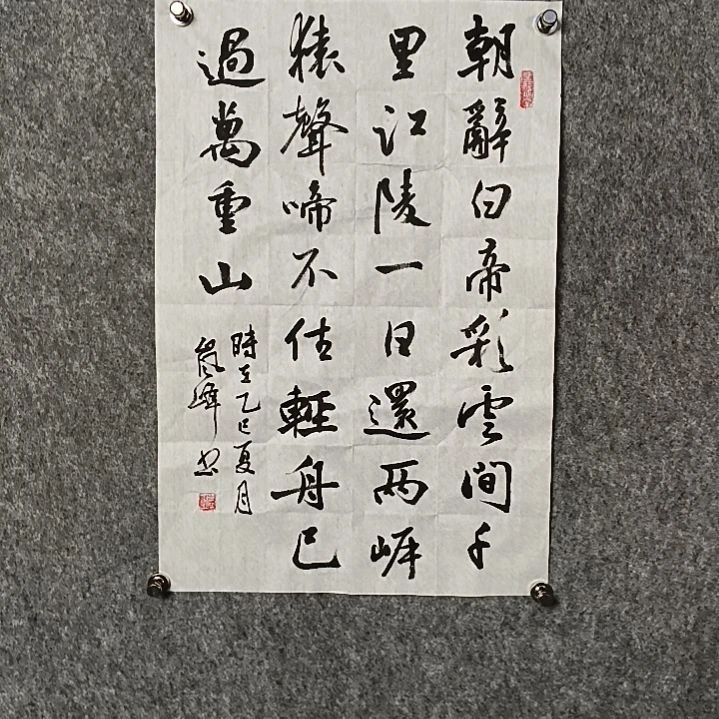 朝辭白帝彩雲間千
里江陵一日還兩岸
猿聲啼不住輕舟已
過萬重山
時在乙巳夏月
嵐峰书